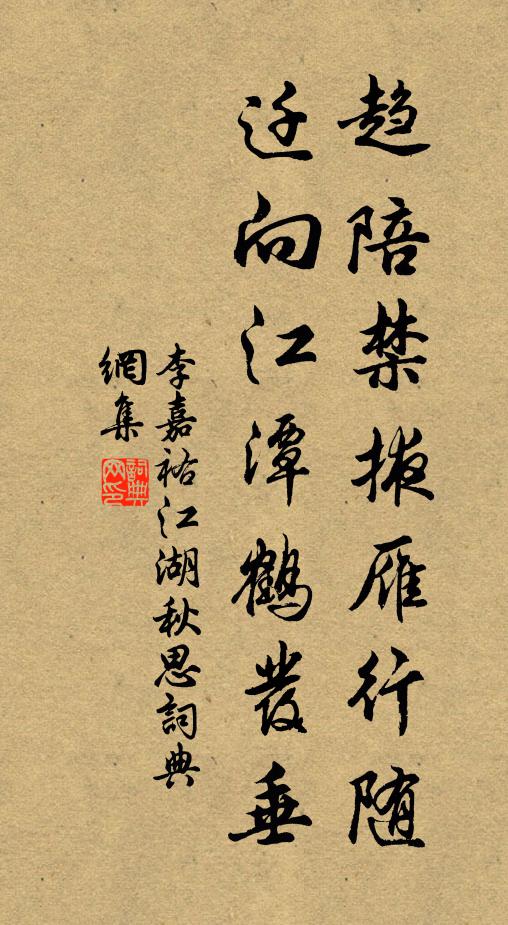 趋陪禁掖雁行随
迁向江潭鹤发垂
李嘉祐江湖秋思詞典
網集
詞典
网印